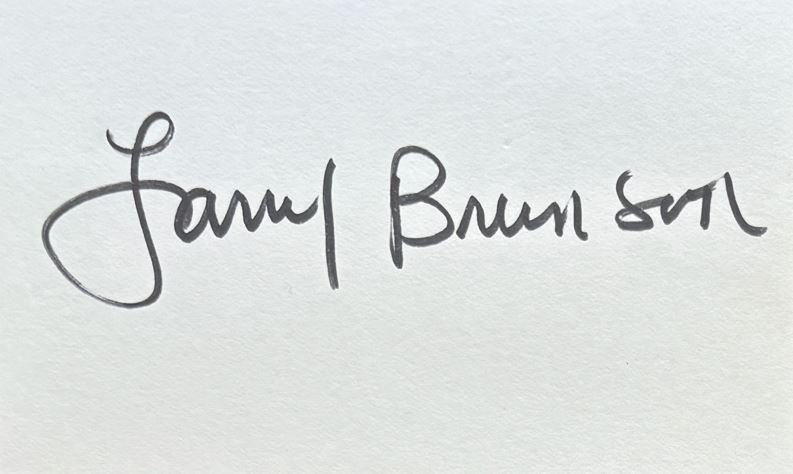 Larry Brunson